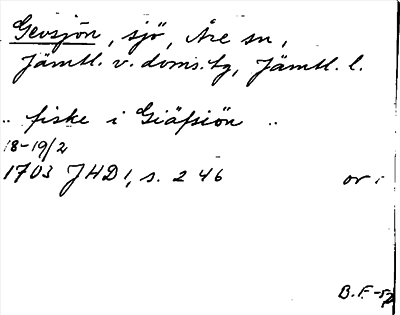 Gevsjön, sjö, Åre sn,
Jämtl. v. doms. tg, Jämtl. l.
.. fiske i Giäfsiön ..
18-19/2
1703 JHD 1, s. 246 or
B. F. -52